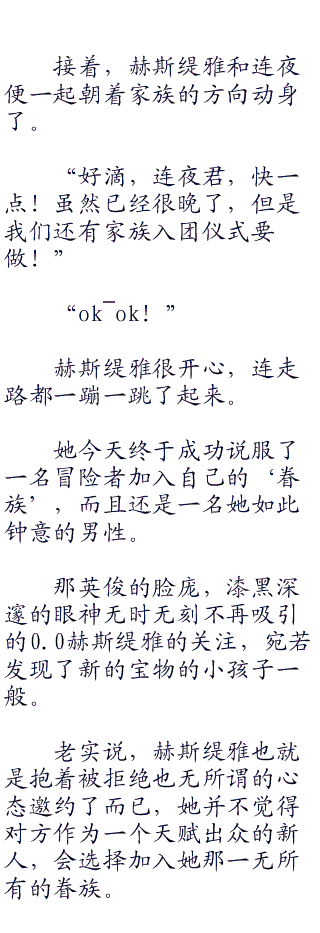 接着，赫斯缇雅和连夜
便一起朝着家族的方向动身
了。
“好滴，连夜君，快一
点！虽然已经很晚了，但是
我们还有家族入团仪式要
做！”
“ok¯ok！”
赫斯缇雅很开心，连走
路都一蹦一跳了起来。
她今天终于成功说服了
一名冒险者加入自己的‘眷
族’，而且还是一名她如此
钟意的男性。
那英俊的脸庞，漆黑深
邃的眼神无时无刻不再吸引
的0.0赫斯缇雅的关注，宛若
发现了新的宝物的小孩子一
般。
老实说，赫斯缇雅也就
是抱着被拒绝也无所谓的心
态邀约了而已，她并不觉得
对方作为一个天赋出众的新
人，会选择加入她那一无所
有的眷族。